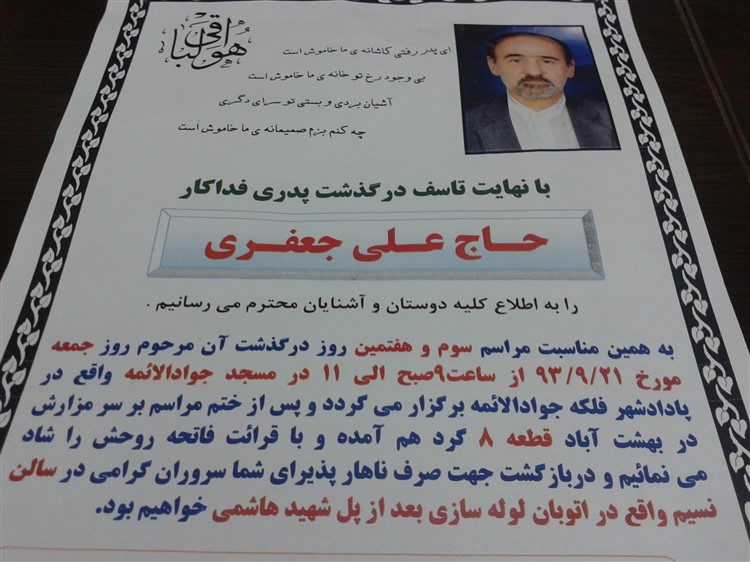 هوالباقی
ای پدر رفتی کاشانه ی ما خاموش است
بی وجود رخ تو خانه ی ما خاموش است
آشیان بردی و بستی تو سرای دگری
چه کنم بزم صمیمانه ی ما خاموش است
با نهایت تاسف درگذشت پدری فداکار
حاج علی جعفری
را به اطلاع کلیه دوستان و آشنایان محترم می رسانیم .
به همین مناسبت مراسم سوم و هفتمین روز درگذشت آن مرحوم روز جمعه
مورخ ۹۳/۹/۲۱ از ساعت۹صبح الی ۱۱ در مسجد جوادالائمه واقع در
پادادشهر فلکه جوادالائمه برگزار می گردد و پس از ختم مراسم بر سر مزارش
در بهشت آباد قطعه ۸ گرد هم آمده و با قرائت فاتحه روحش را شاد
می نمائیم و دربازگشت جهت صرف ناهار پذیرای شما سروران گرامی در سالن
نسیم واقع در اتوبان لوله سازی بعد از پل شهید هاشمی خواهیم بود.